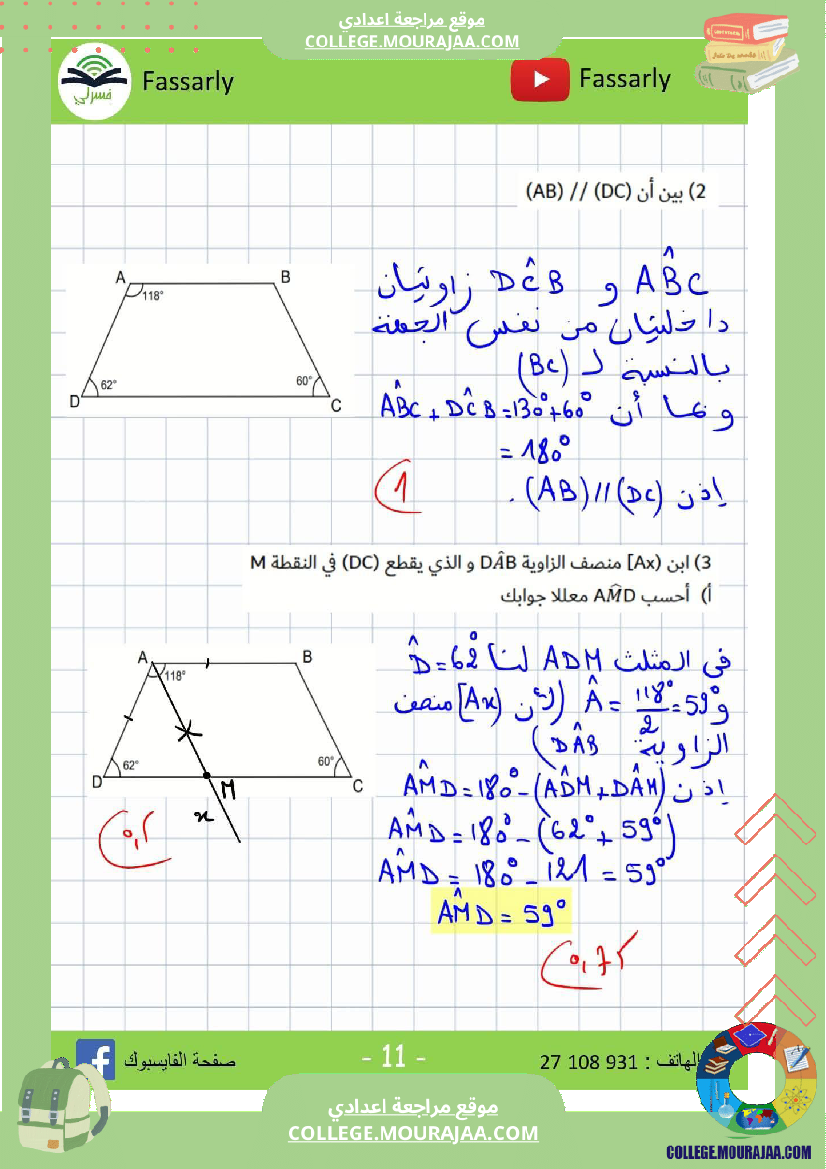 موقع مراجعة اعدادي
COLLEGE.MOURAJAA.COM
فسرلي
Fassarly
Fassarly
2) بين أن (DC) // (AB)
A
B
118°
62°
60°
D
C
AB̂C و DĈB زاويتان
داخليتان من نفس الجهة
بالنسبة لـ (BC)
وبما أن AB̂C + DĈB = 130° + 60°
= 180°
إذن (AB) // (DC).
1
3) ابن [Ax) منصف الزاوية DÂB و الذي يقطع (DC) في النقطة M
أ) أحسب AM̂D معللا جوابك
A
B
118°
62°
60°
D
M
C
x
في المثلث ADM لنا D̂ = 62°
و Â = 118°/2 = 59° (لأن [Ax) منصف
الزاوية DÂB)
إذن AM̂D = 180° - (AD̂M + DÂM)
AM̂D = 180° - (62° + 59°)
AM̂D = 180° - 121 = 59°
AM̂D = 59°
0,75
صفحة الفايسبوك
- 11 -
الهاتف : 27 108 931
موقع مراجعة اعدادي
COLLEGE.MOURAJAA.COM
COLLEGE.MOURAJAA.COM